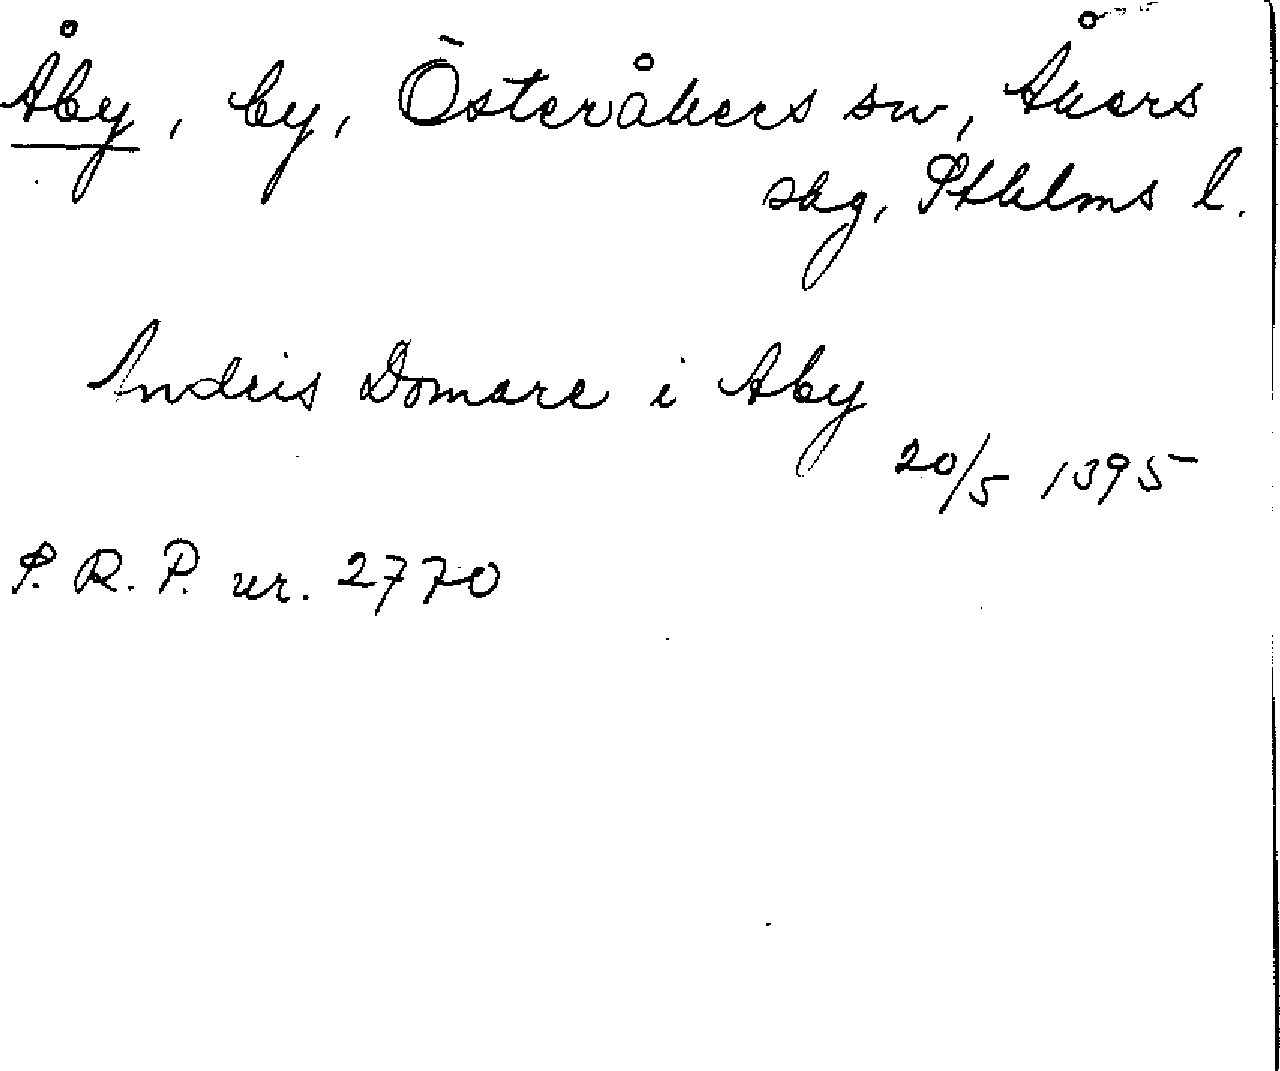 Åby, by, Österåkers sn, Åkers
skg, Sthlms l.
Andris Domare i Aby
20/5 1395
S. R. P. nr. 2770